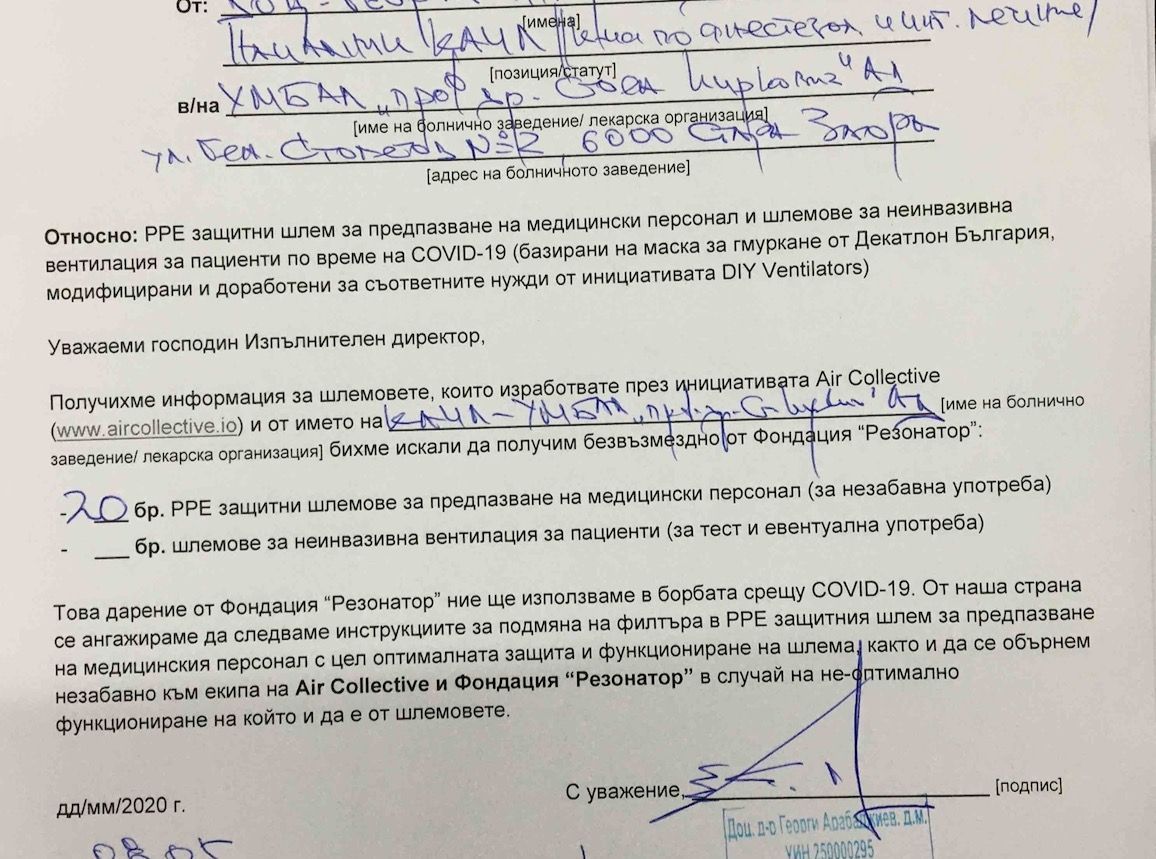 От: Доц.
[имена]
Началник КАИЛ /Клиника по анестезиол. и инт. лечение/
[позиция/статут]
в/на УМБАЛ "Проф. д-р. Стоян Киркович" АД
[име на болнично заведение/ лекарска организация]
ул. Ген. Столетов №2 6000 Стара Загора
[адрес на болничното заведение]
Относно: PPE защитни шлем за предпазване на медицински персонал и шлемове за неинвазивна
вентилация за пациенти по време на COVID-19 (базирани на маска за гмуркане от Декатлон България,
модифицирани и доработени за съответните нужди от инициативата DIY Ventilators)
Уважаеми господин Изпълнителен директор,
Получихме информация за шлемовете, които изработвате през инициативата Air Collective
(www.aircollective.io) и от името на КАИЛ - УМБАЛ "Проф. д-р. Ст. Киркович" АД [име на болнично
заведение/ лекарска организация] бихме искали да получим безвъзмездно от Фондация “Резонатор”:
- 20 бр. PPE защитни шлемове за предпазване на медицински персонал (за незабавна употреба)
- ___ бр. шлемове за неинвазивна вентилация за пациенти (за тест и евентуална употреба)
Това дарение от Фондация “Резонатор” ние ще използваме в борбата срещу COVID-19. От наша страна
се ангажираме да следваме инструкциите за подмяна на филтъра в PPE защитния шлем за предпазване
на медицинския персонал с цел оптималната защита и функциониране на шлема, както и да се обърнем
незабавно към екипа на Air Collective и Фондация “Резонатор” в случай на не-оптимално
функциониране на който и да е от шлемовете.
С уважение, [подпис]
дд/мм/2020 г.
Доц. д-р Георги Арабаджиев. д.м.
УИН 250000295
08.05